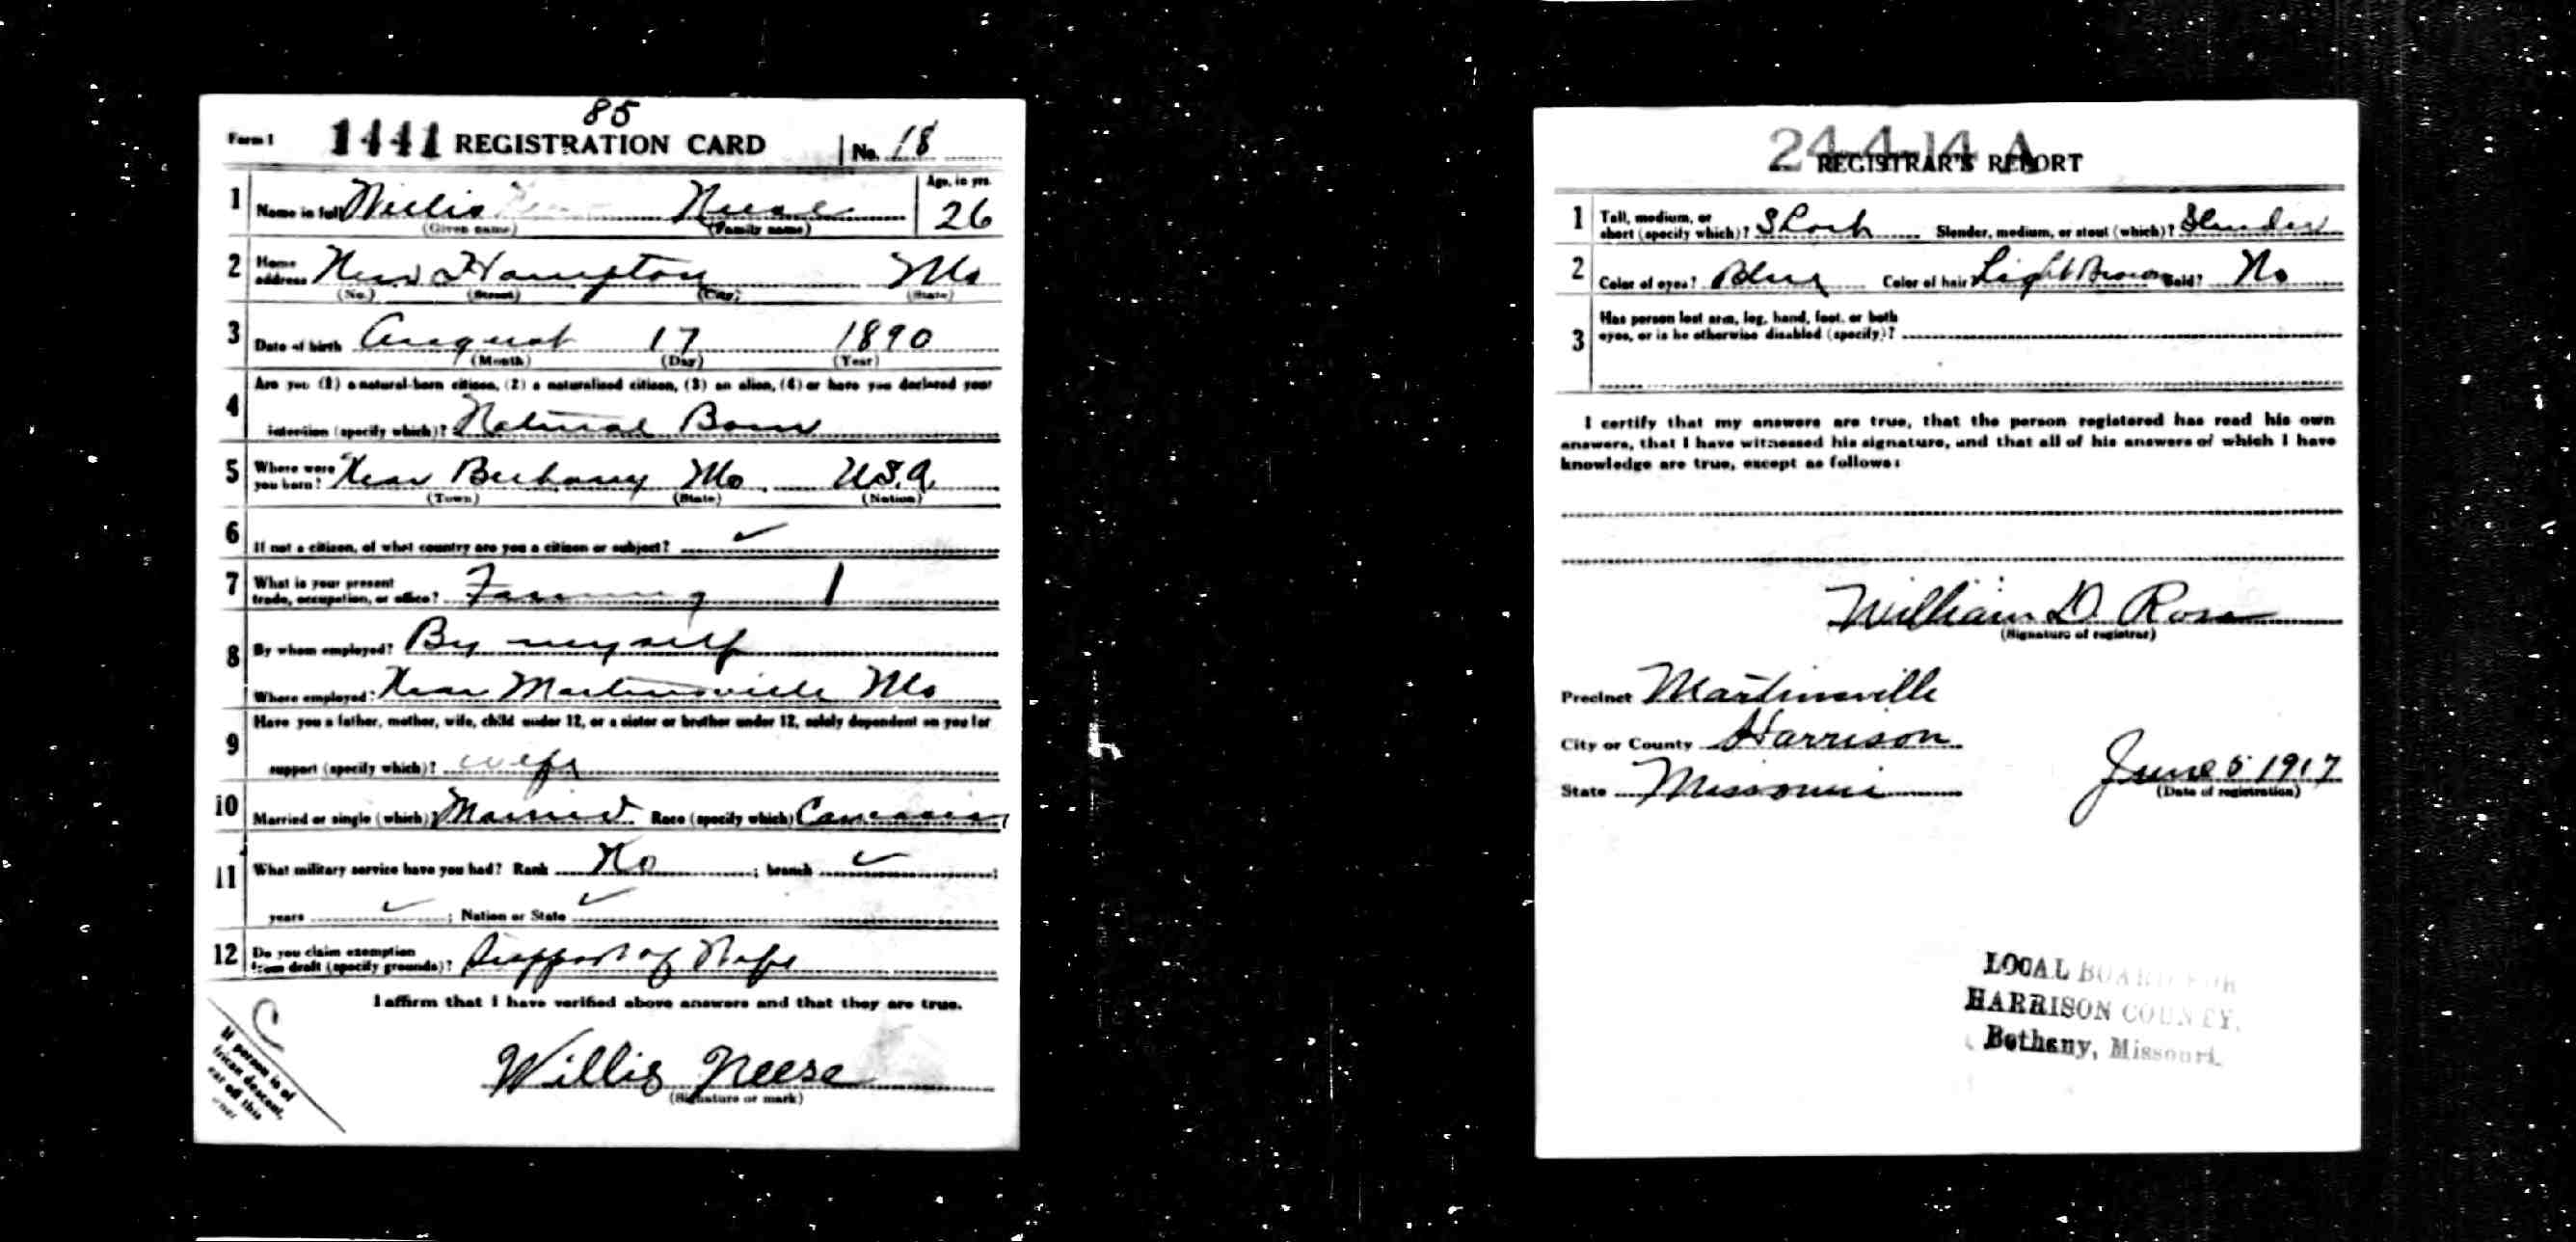 85
Form 1 1441 REGISTRATION CARD No. 18
1 Name in full Willis Neese Age, in yrs. 26
(Given name) (Family name)
2 Home address New Hampton Mo
(No.) (Street) (City) (State)
3 Date of birth August 17 1890
(Month) (Day) (Year)
4 Are you (1) a natural-born citizen, (2) a naturalized citizen, (3) an alien, (4) or have you declared your
intention (specify which)? Natural Born
5 Where were you born? Near Bethany Mo U.S.A.
(Town) (State) (Nation)
6 If not a citizen, of what country are you a citizen or subject? ✓
7 What is your present trade, occupation, or office? Farming 1
8 By whom employed? By myself
Where employed? Near Martinsville Mo
9 Have you a father, mother, wife, child under 12, or a sister or brother under 12, solely dependent on you for
support (specify which)? wife
10 Married or single (which)? Married Race (specify which)? Caucasian
11 What military service have you had? Rank No ; branch ✓ ;
years ✓ ; Nation or State ✓
12 Do you claim exemption from draft (specify grounds)? Support of Wife
I affirm that I have verified above answers and that they are true.
C
Willis Neese
(Signature or mark)
If person is of
African descent,
cut off this
corner
24-4-14 A
REGISTRAR'S REPORT
1 Tall, medium, or short (specify which)? Short Slender, medium, or stout (which)? Slender
2 Color of eyes? Blue Color of hair? Light Brown Bald? No
3 Has person lost arm, leg, hand, foot, or both
eyes, or is he otherwise disabled (specify)?
I certify that my answers are true, that the person registered has read his own
answers, that I have witnessed his signature, and that all of his answers of which I have
knowledge are true, except as follows:
William D. Ross
(Signature of registrar)
Precinct Martinsville
City or County Harrison
State Missouri June 5 1917
(Date of registration)
LOCAL BOARD FOR
HARRISON COUNTY,
Bethany, Missouri.